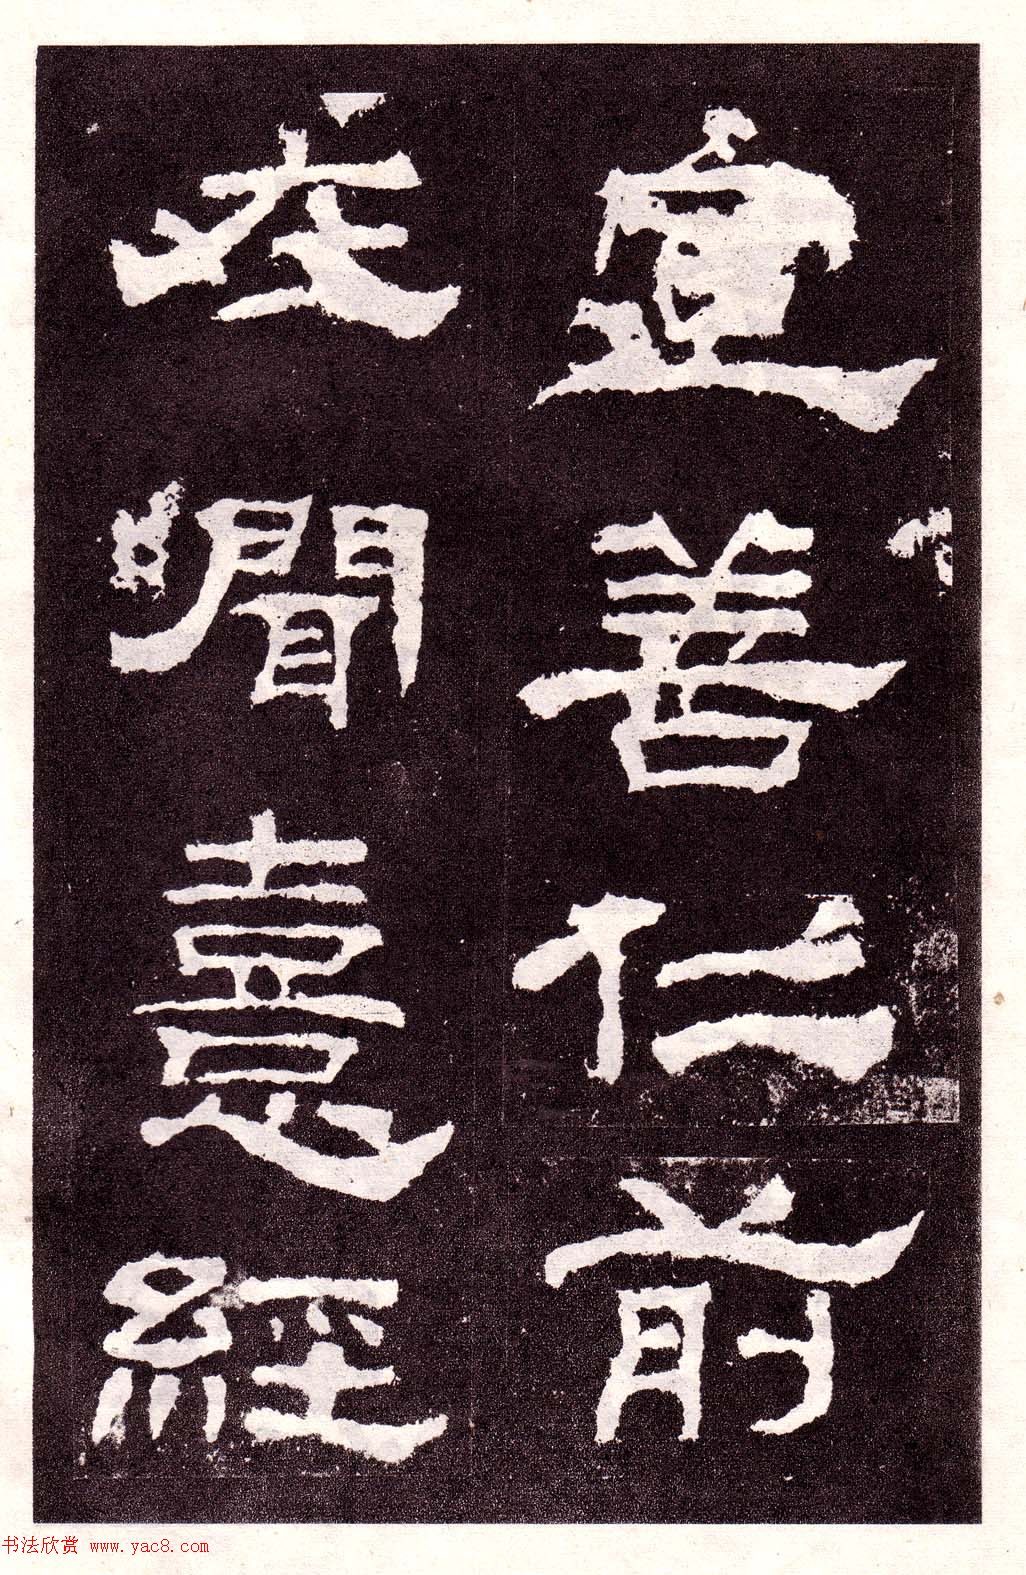 宣善仁前
岐聞憙經
书法欣赏 www.yac8.com